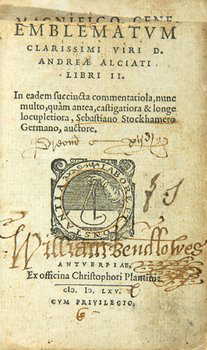 MAGNIFICO GENE
EMBLEMATVM
CLARISSIMI VIRI D.
ANDREÆ ALCIATI
LIBRI II.
In eadem succincta commentariola, nunc
multo, quàm antea, castigatiora & longe
locupletiora, Sebastiano Stockhamero
Germano, auctore.
LABORE
CONSTANTIA
William Bendlowes
ANTVERPIAE,
Ex officina Christophori Plantini,
CIↃ. IↃ. LXV.
CVM PRIVILEGIO.